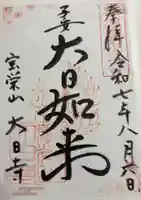 奉拝 令和七年八月六日
大日如来
宝栄山 大日寺